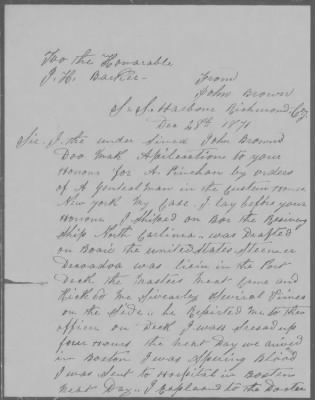 Too the Honorable
J. H. Barker -
From
John Brown
S. S. Harbour Richmond Cty
Dec 28th 1871
Sir I the under Sined John Brown
Doo Mak Apilacation to your
Honour for A Pinchan by orders
of A Gentealman in the Custom House
New York My Case I lay before your
Honour I Shiped on Bor the Resiving
Ship North Carlina was Drafted
on Board the united States Steemer
was liein in the Port
Deck the Masters Meat Came and
Kick'd Me Sevearley Seviral Times
on the Side he Reported Me to the
officer on Deck I was up
four Hours the next Day we arived
in Boston I was Blood
I was Sent to Hospital in Boston
next Day I Explaand to the Docter